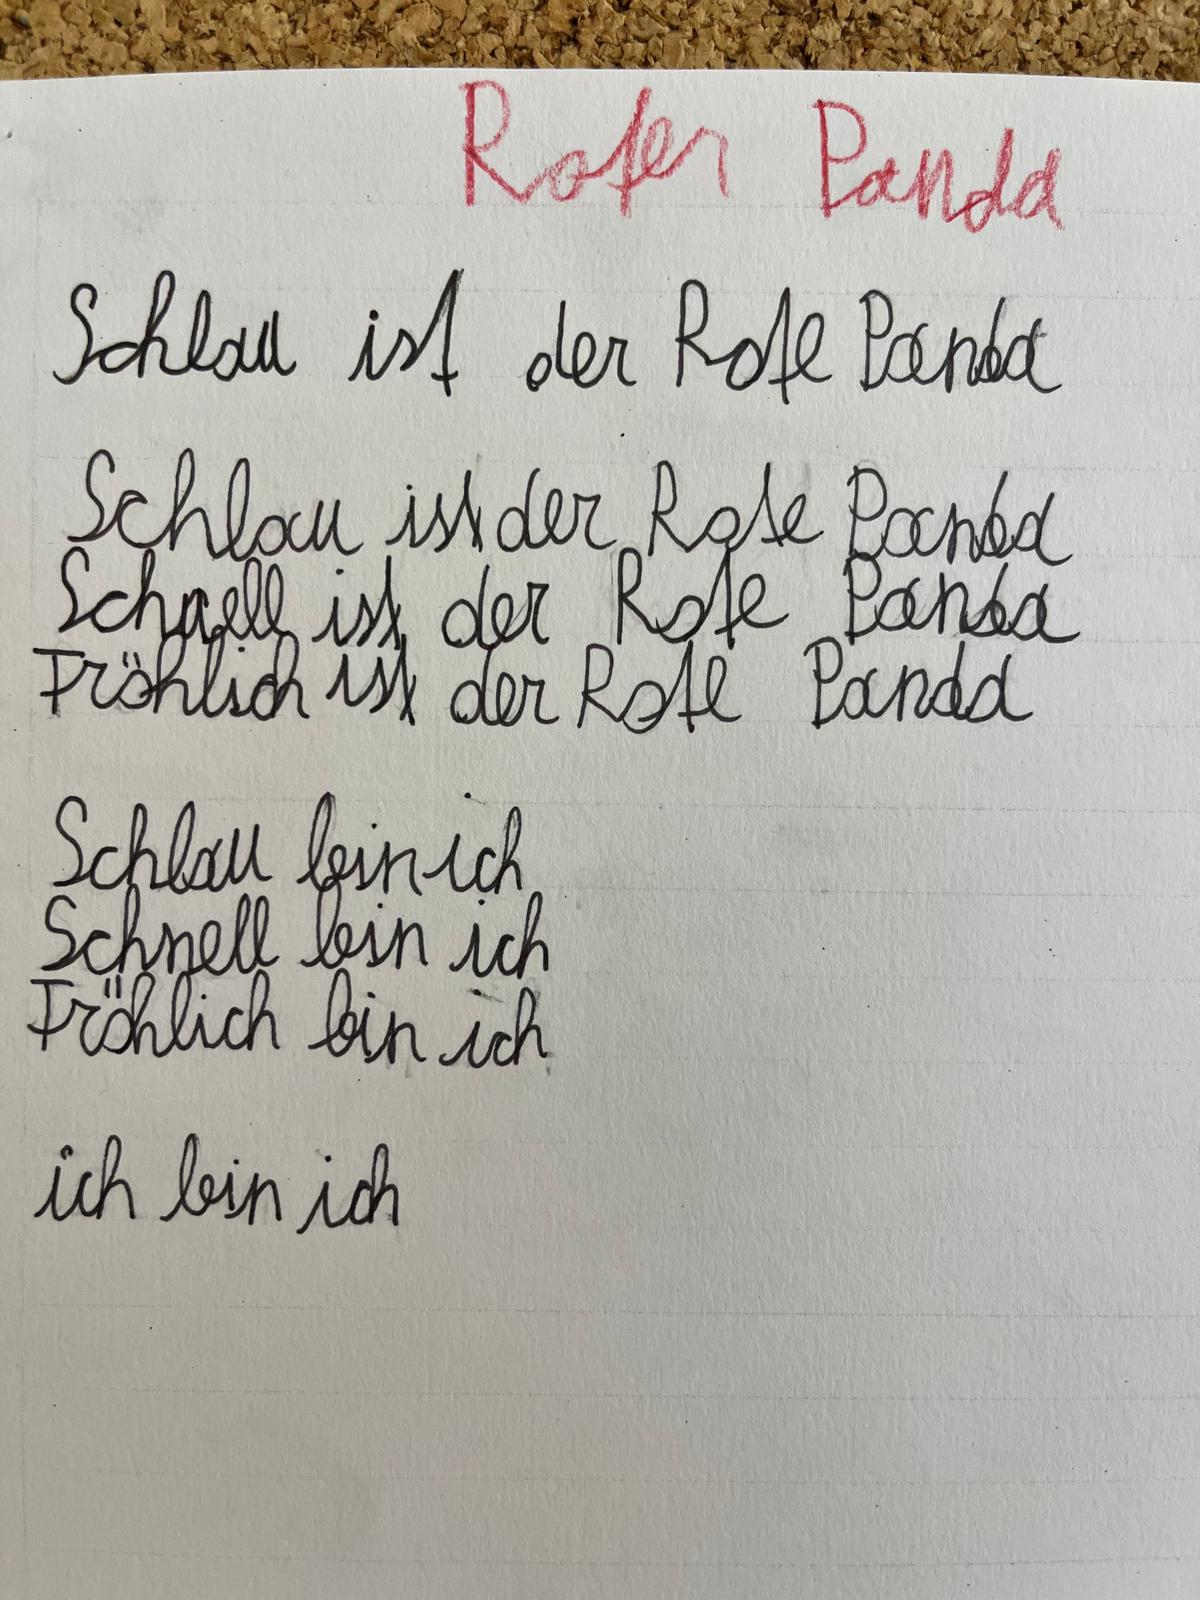 Roter Panda
Schlau ist der Rote Panda
Schlau ist der Rote Panda
Schnell ist der Rote Panda
Fröhlich ist der Rote Panda
Schlau bin ich
Schnell bin ich
Fröhlich bin ich
ich bin ich